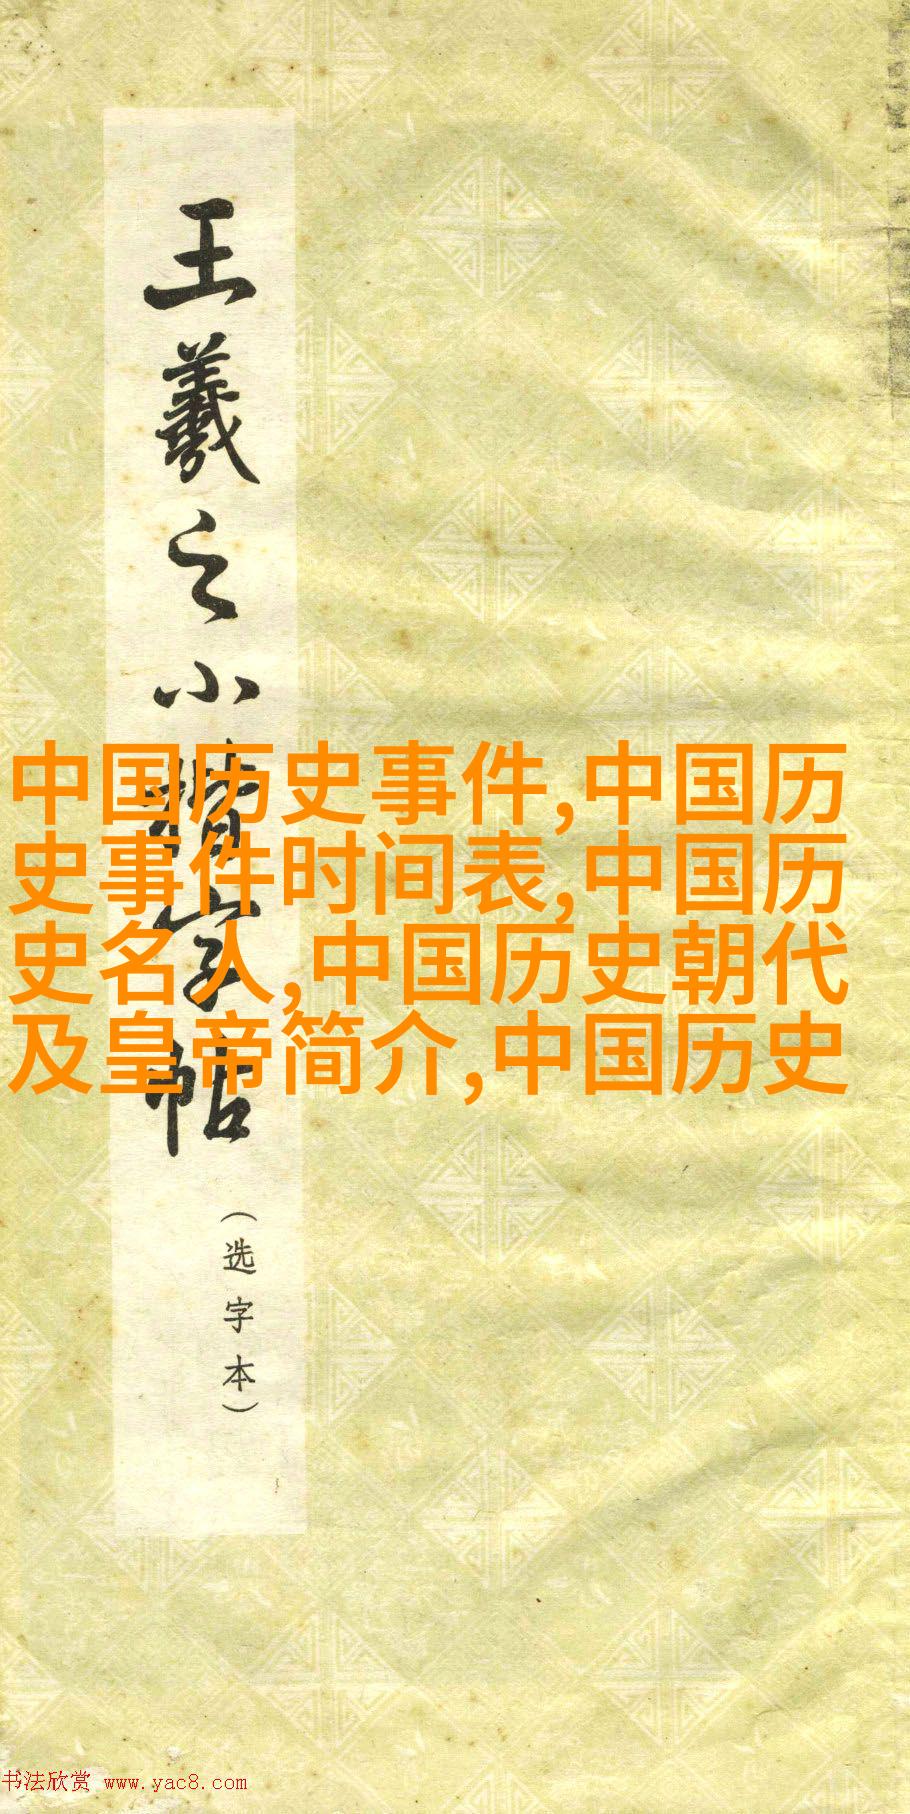 王羲之小楷字帖
(选字本)
中国历史事件,中国历
史事件时间表,中国历
史名人,中国历史朝代
及皇帝简介,中国历史
书法欣赏 www.yac8.com